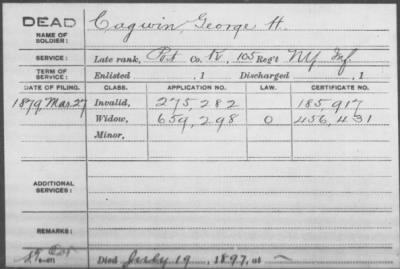 DEAD
NAME OF SOLDIER: Cagwin, George H.
SERVICE: Late rank, Pvt Co. K, 105 Reg't NY Inf.
TERM OF SERVICE: Enlisted , 1 Discharged , 1
DATE OF FILING. CLASS. APPLICATION NO. LAW. CERTIFICATE NO.
1879 Mar. 27 Invalid, 275,282 185,917
Widow, 659,298 O 456,431
Minor,
ADDITIONAL SERVICES:
REMARKS:
Died July 19, 1897, at